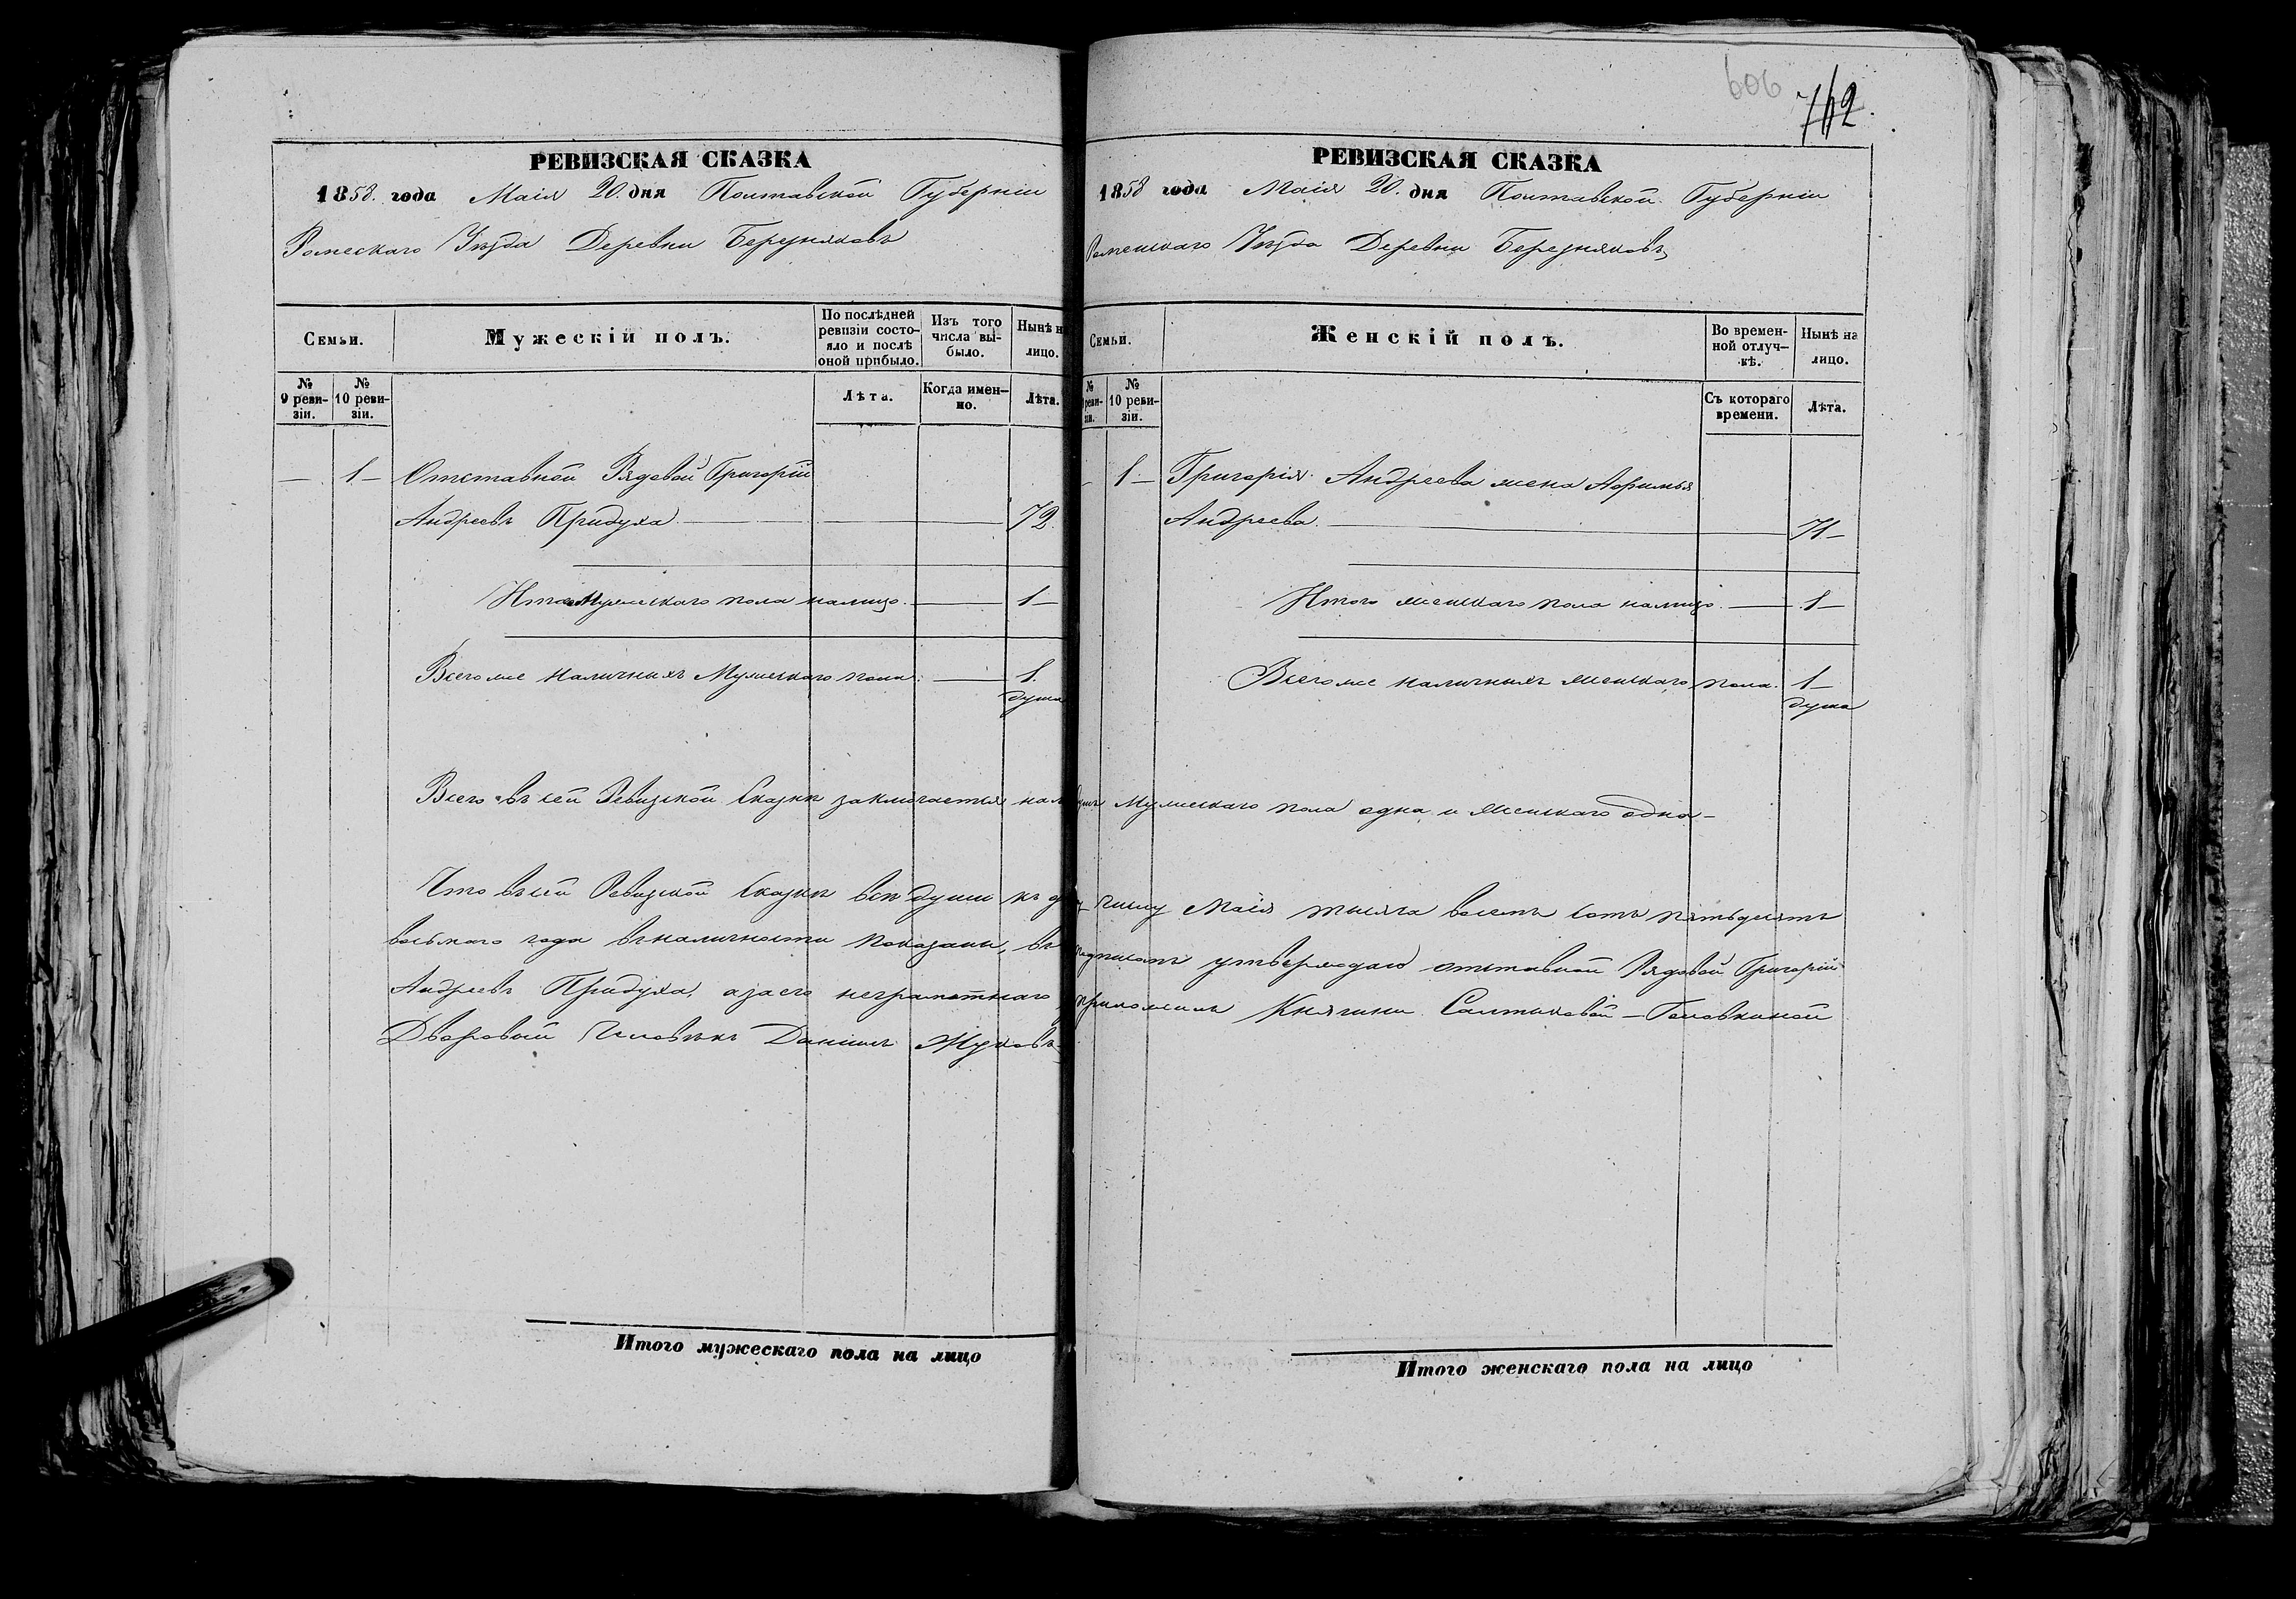 РЕВИЗСКАЯ СКАЗКА
1858. года Маія 20. дня Полтавской Губерніи
Ромескаго Уѣзда Деревни Березняковъ
Семьи.
Мужескій полъ.
По послѣдней ревизіи состояло и послѣ оной прибыло.
Изъ того числа выбыло.
Нынѣ н
лицо.
№ 9 ревизіи.
№ 10 ревизіи.
Лѣта.
Когда именно.
Лѣта.
— 1 — Отставной Рядовой Григорій
Андреевъ Придуха 72.
Итого Мужескаго пола налицо. 1 —
Всегоже наличныхъ Мужескаго пола. 1.
душа
Всего въ сей Ревизской Сказкѣ заключается нал
Что въ сей Ревизской Сказкѣ всѣ души къ д
восьмого года въ наличности показаны, въ
Андреевъ Придуха, а за его неграмотнаго
Дворовый Человѣкъ Даніилъ Жуковъ
Итого мужескаго пола на лицо
606
762.
РЕВИЗСКАЯ СКАЗКА
1858 года Маія 20. дня Полтавской Губерніи
Роменскаго Уѣзда Деревни Березняковъ
Семьи.
Женскій полъ.
Во временной отлучкѣ.
Нынѣ на лицо.
№ реви-зіи.
№ 10 ревизіи.
Съ котораго времени.
Лѣта.
1 — Григорія Андреева жена Афимья
Андреева. 71 —
Итого женскаго пола налицо. 1 —
Всегоже наличныхъ женскаго пола. 1 —
душа
Мужескаго пола одна и женскаго одна —
числу Маія тысяча восемь сотъ пятьдесятъ
утверждаю отставной Рядовой Григорій
приложилъ Княгини Салтыковой — Головкиной
Итого женскаго пола на лицо